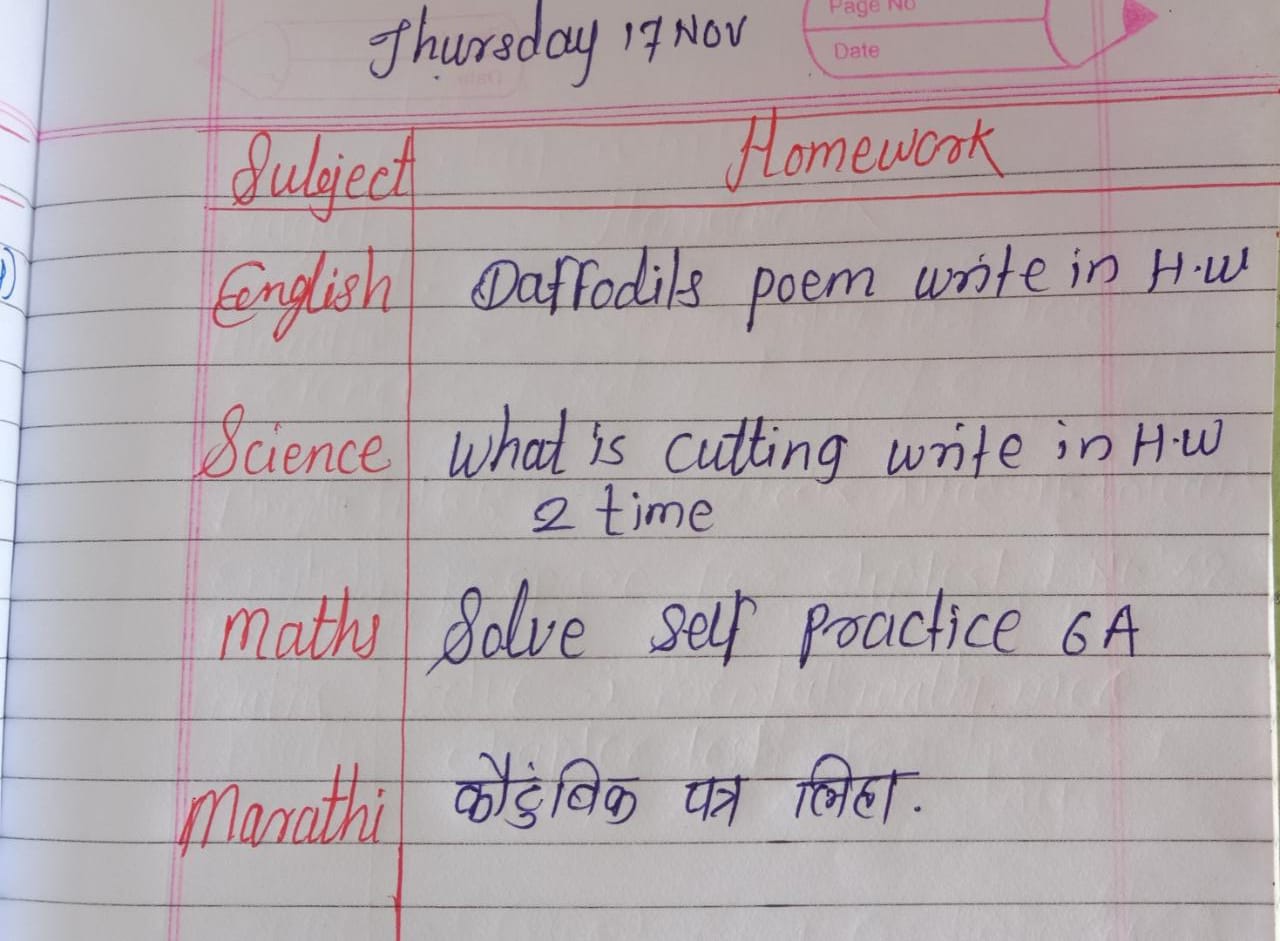 Page No
Thursday 17 Nov
Date
Subject Homework
English Daffodils poem write in H.W
Science What is cutting write in H.W
2 time
Maths Solve self practice 6A
Marathi कौटुंबिक पत्र लिहा.